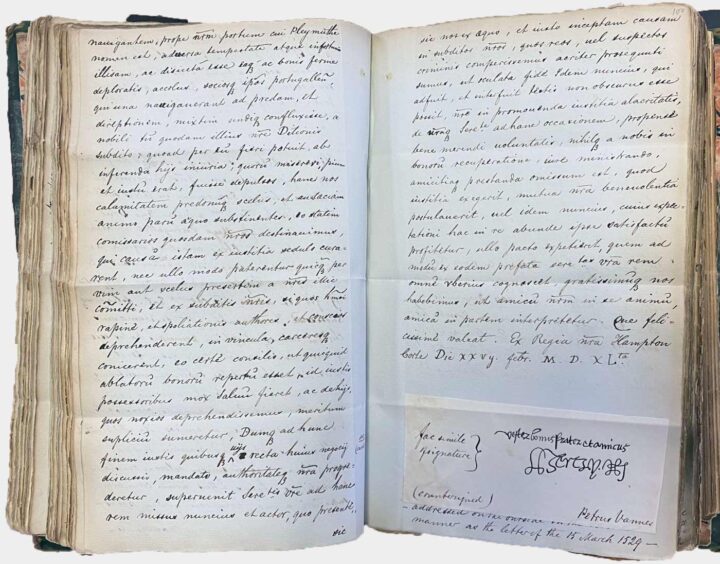 navigantem, prope nrm portum cui Pleymuthe
nomen est, adversa tempestate atque
illesam, ac disiectam esse bonis ferme
deploratis; accolas, sociosq ipos portugallen
qui una navigaverant ad predam, et
direptionem, mixtim undiq confluxisse, a
nobili tn quodam illius nre Ditionis
subdito, quoad per eu fieri potuit, ab
inferenda hijs iniuria, quoru misereri, pium
et iustu erat, fuisse depulsos, hanc nos
calamitatem predonuq scelus, et audaciam
animo paru equo substinentes, eo statim
comissarios quosdam nros destinavimus,
qui causa istam ex iustitia sedulo cura-
rent, nec ullo modo paterentur per
vim aut scelus presertem a nris illic
comitti, et ex subditis nris, si quos
rapine, et spoliationis authores, et conscios
deprehenderent, in vincula, carceresq
conicerent, eo certe consilio, ut quicquid
ablatoru bonoru repertu esset, id iustis
possessoribus mox salvu fieret, ac de hijs,
quos noxios deprehendissemus, meritum
supliciu sumeretur, Dumq ad hunc
finem iustis quibusq vijs recta huius negocij
discussis, mandato, authoritateq nra progre-
deretur, supervenit Seretis vre ad hanc
rem missus nuncius et actor, quo presente,
sic
100
sic nos ex aquo, et iusto inceptam causam
in subditos nros, quos reos, vel suspectos
criminis comperissemus acriter prosequuti
sumus, ut oculata fide Idem nuncius, qui
adfuit, et interfuit testis non obscurus esse
possit, nra in promovenda iustitia alacritatis,
de ad hanc occasionem, propense
bene merendi voluntatis, nihilq a nobis in
bonoru recuperatione, iure ministrando,
amicitiaq prestanda omissum est, quod
iustitia exegerit, mutua nra benevolentia
postulaverit, vel idem nuncius, cuius expec-
tationi hac in re abunde ipse satisfactu
profitetur, ullo pacto expetierit, quem ad
modu ex eodem prefata seretas vra rem
omne uberius cognoscet, gratissimuq nos
habebimus, ut amicu nrm in se animu,
amica in partem interpretetur. Que feli-
cissime valeat. Ex Regia nra Hampton
Corte Die xxvij. febr. M. D. X L.ta
fac simile
of signature }
vester bonus frater et amicus
(countersigned)
Petrus Vannes
addressed on the outside in
manner as the letter of the 15 March 1529 —